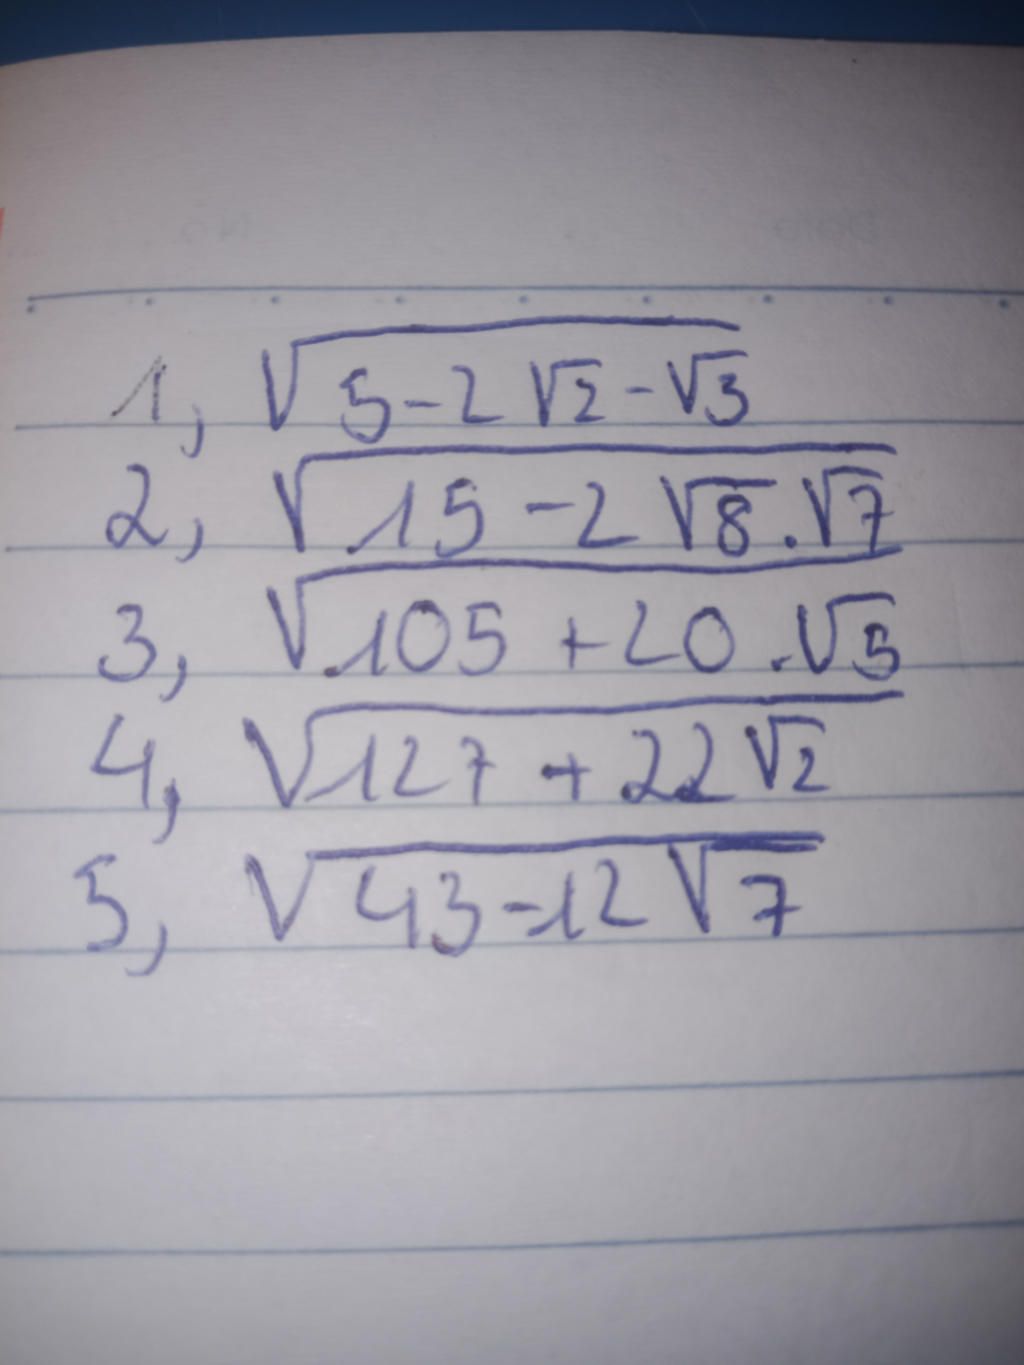 1, √5-2√2-√3
2, √15-2√8.√7
3, √105+20.√5
4, √127+22√2
5, √43-12√7